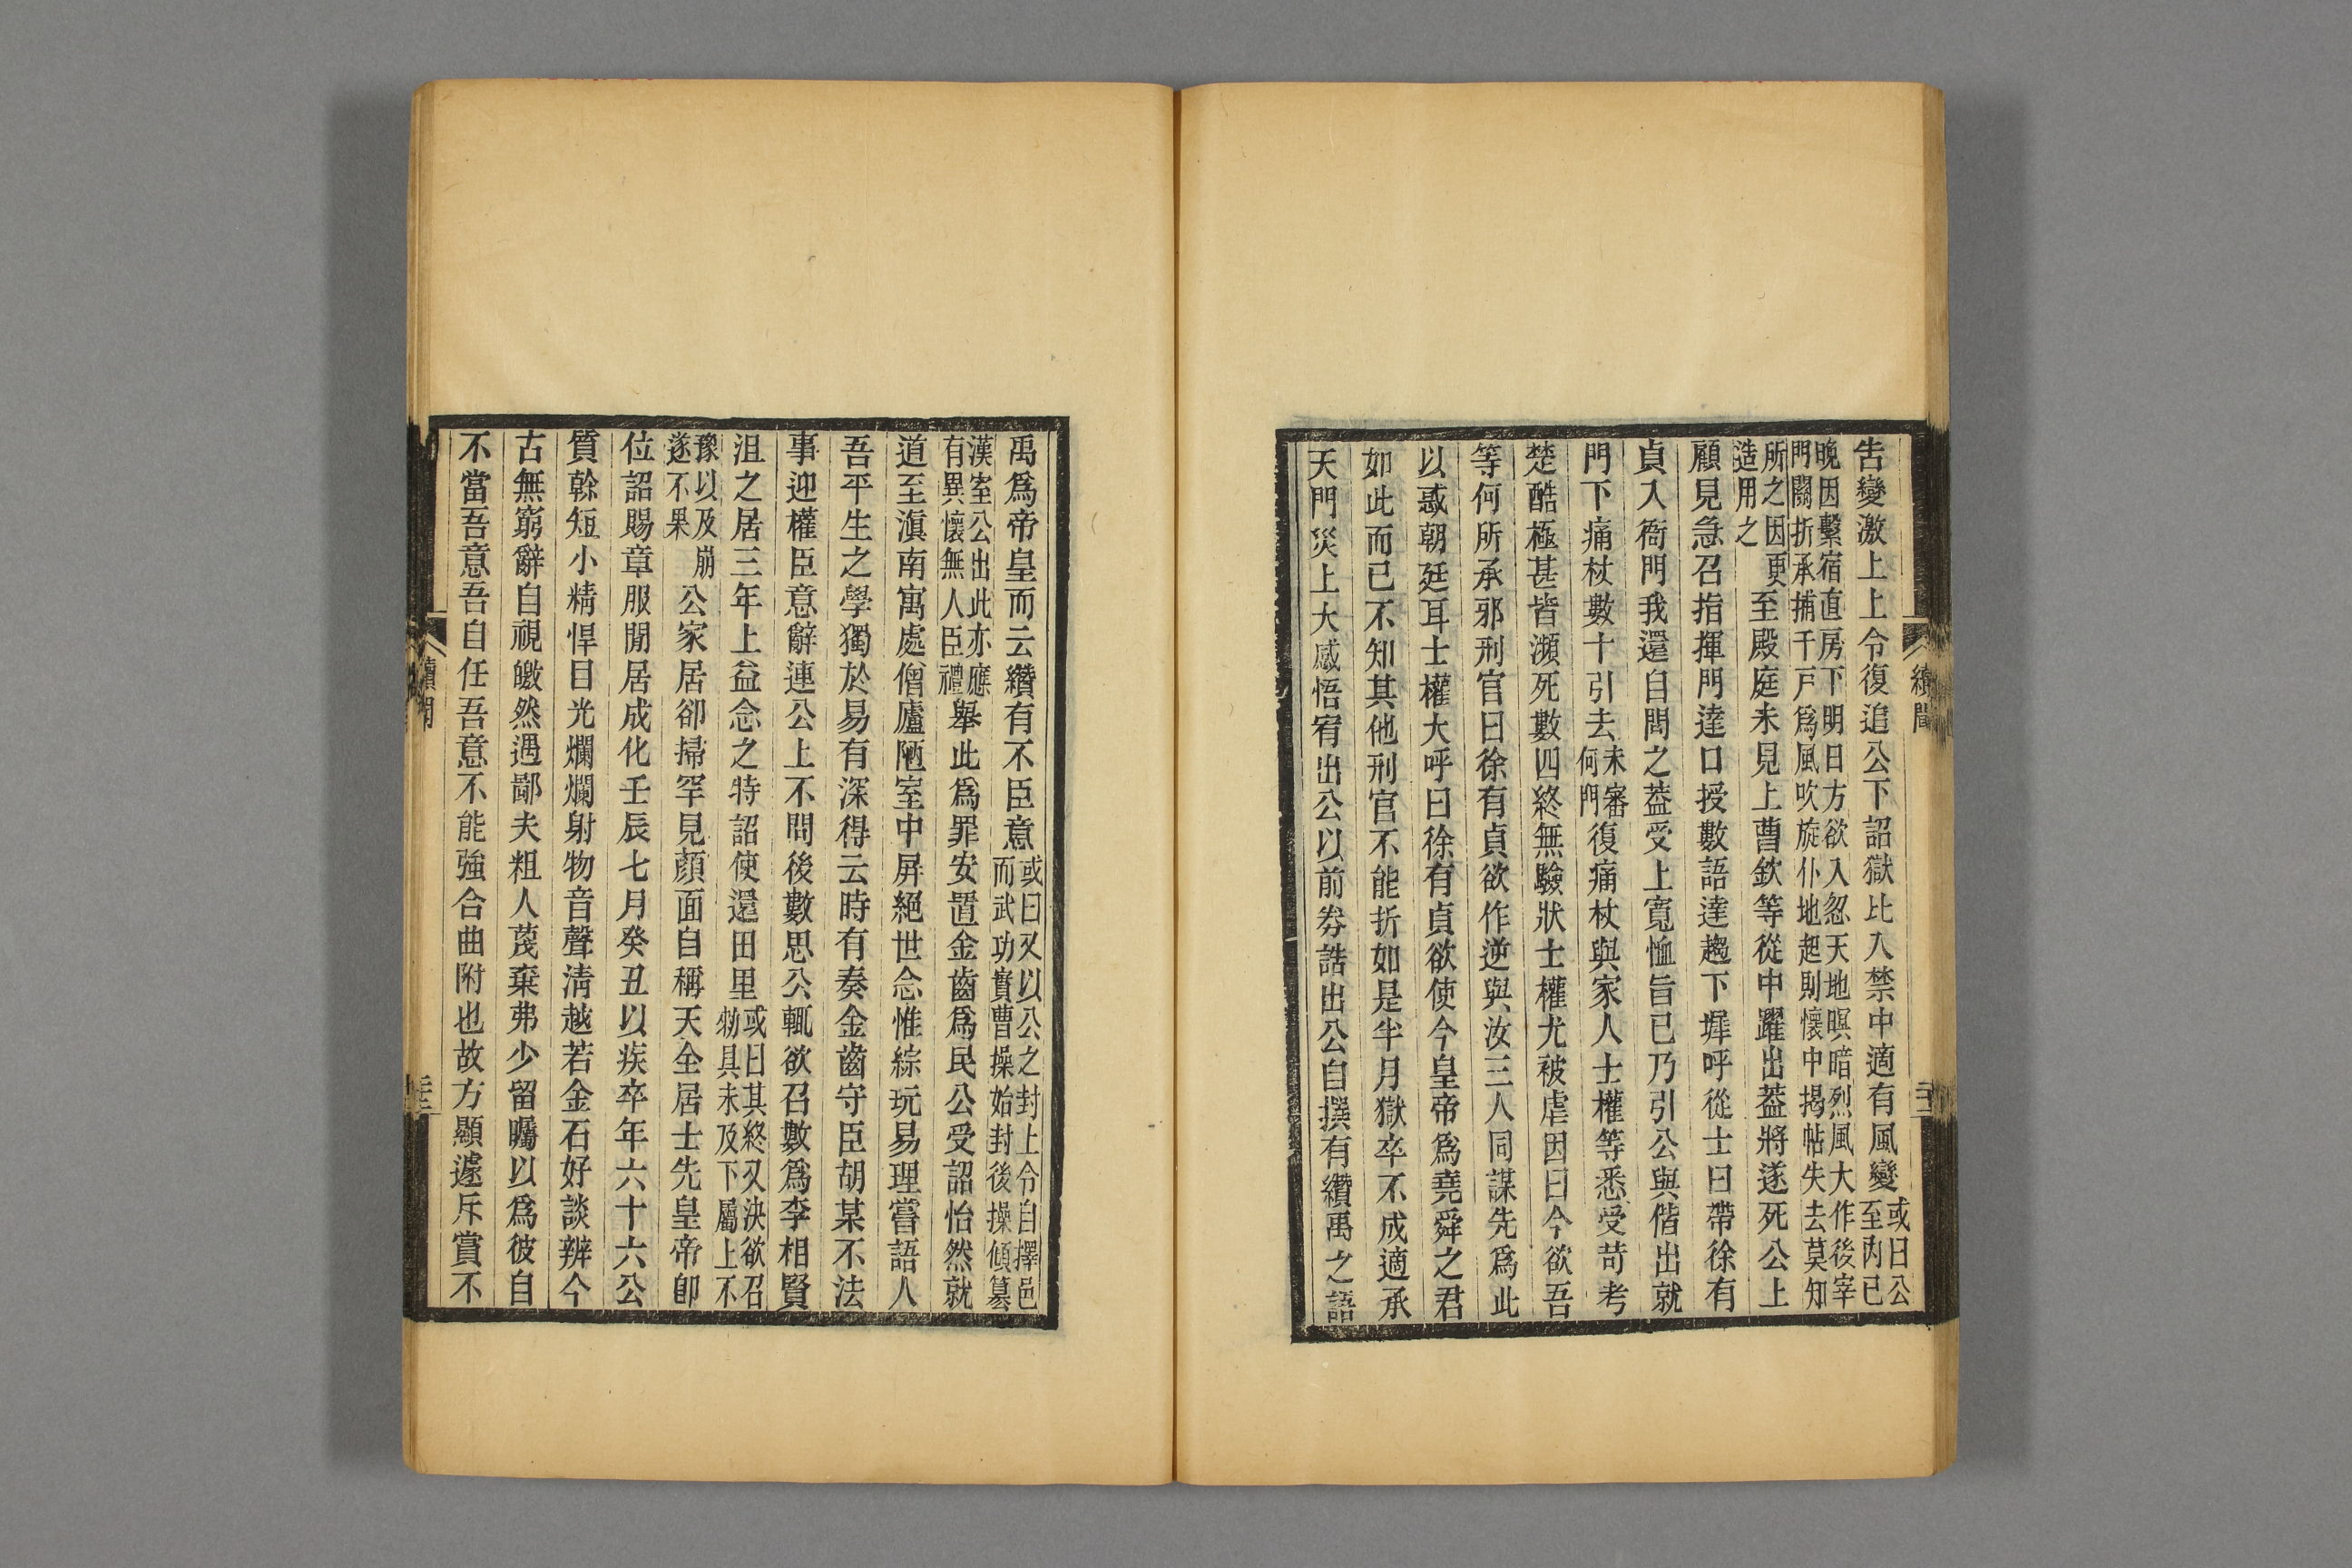 告變激上上令復追公下詔獄比入禁中適有風變或曰公至丙已
晚因繫宿直房下明日方欲入忽天地暝暗烈風大作後宰門關折承捕千戶爲風吹旋仆地起則懷中揭帖失去莫知
所之因更造用之至殿庭未見上曹欽等從中躍出葢將遂死公上
顧見急召指揮門達口授數語達趨下墀呼從士曰帶徐有
貞入衙門我還自問之葢受上寬恤旨已乃引公與偕出就
門下痛杖數十引去未審何門復痛杖與家人士權等悉受苛考
楚酷極甚皆瀕死數四終無驗狀士權尤被虐因曰今欲吾
等何所承邪刑官曰徐有貞欲作逆與汝三人同謀先爲此
以惑朝廷耳士權大呼曰徐有貞欲使今皇帝爲堯舜之君
如此而已不知其他刑官不能折如是半月獄卒不成適承
天門災上大感悟宥出公以前券誥出公自撰有纘禹之語
續聞
禹爲帝皇而云纘有不臣意或曰又以公之封上令自擇邑而武功實曹操始封後操傾簒
漢室公出此亦應有異懷無人臣禮舉此爲罪安置金齒爲民公受詔怡然就
道至滇南寓處僧廬陋室中屏絕世念惟綜玩易理嘗語人
吾平生之學獨於易有深得云時有奏金齒守臣胡某不法
事迎權臣意辭連公上不問後數思公輒欲召數爲李相賢
沮之居三年上益念之特詔使還田里或曰其終又決欲召勑具未及下屬上不
豫以及崩遂不果公家居卻掃罕見顏面自稱天全居士先皇帝卽
位詔賜章服閒居成化壬辰七月癸丑以疾卒年六十六公
質幹短小精悍目光爛爛射物音聲淸越若金石好談辨今
古無窮辭自視皦然遇鄙夫粗人蔑棄弗少留矚以爲彼自
不當吾意吾自任吾意不能強合曲附也故方顯遽斥賞不